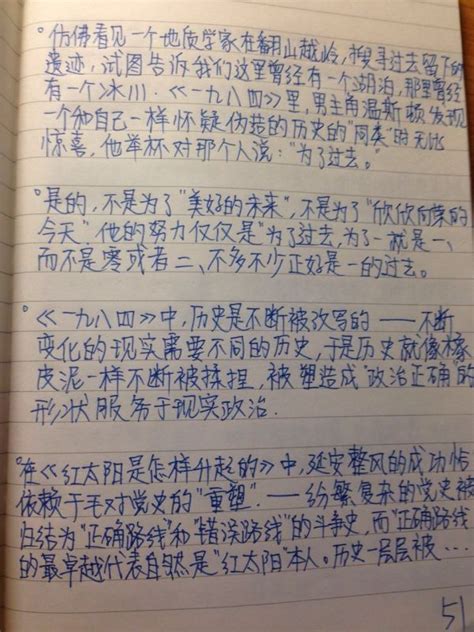 °仿佛看见一个地质学家在翻山越岭，搜寻过去留下的
遗迹，试图告诉我们这里曾经有一个湖泊，那里曾经
有一个冰川。《一九八四》里，男主角温斯顿发现
一个和自己一样怀疑伪造的历史的"同类"时无比
惊喜，他举杯对那个人说："为了过去。"
°是的，不是为了"美好的未来"，不是为了"欣欣向荣的
今天"他的努力仅仅是"为了过去，为了一就是一、
而不是零或者二、不多不少正好是一的过去。
°《一九八四》中，历史是不断被改写的——不断
变化的现实需要不同的历史，于是历史就像橡
皮泥一样不断被揉捏，被塑造成"政治正确"的
形状服务于现实政治.
°在《红太阳是怎样升起的》中，延安整风的成功恰
依赖于毛对党史的"重塑".——纷繁复杂的党史被
归结为"正确路线"和"错误路线"的斗争史，而"正确路线"
的最卓越代表自然是"红太阳"本人。历史一层层被…
51